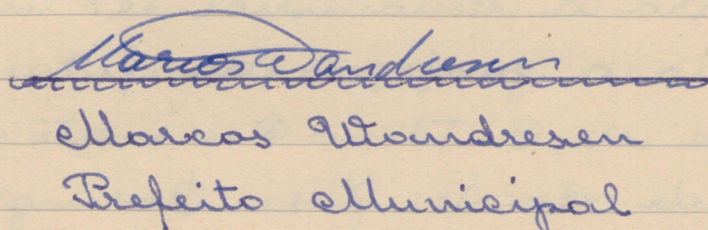 Marcos Wandresen
Marcos Wandresen
Prefeito Municipal